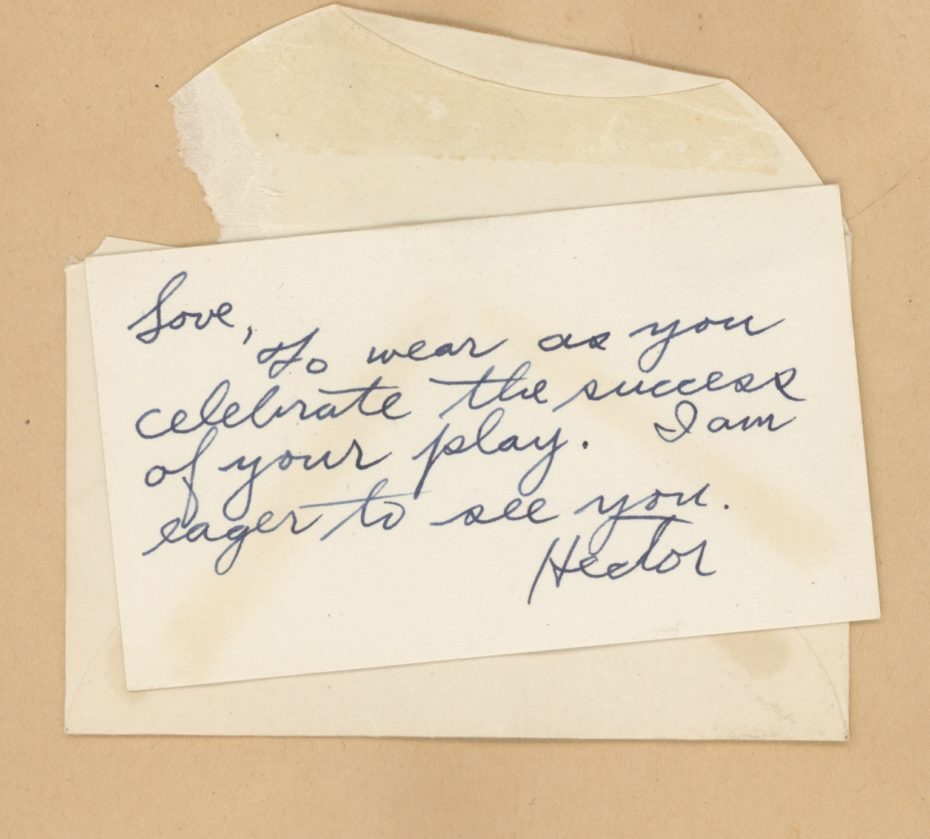 Love,
To wear as you
celebrate the success
of your play. I am
eager to see you.
Hector